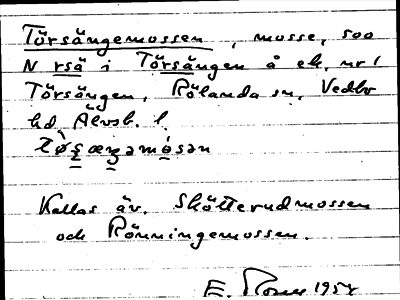 Törsängemossen, mosse, 500
N rså i Törsången å ek. nr 1
Törsängen, Rölanda sn, Vedbo
hd, Älvsb. l.
Kallas äv. Skötterudmossen
och Rönningemossen.
E. 1954